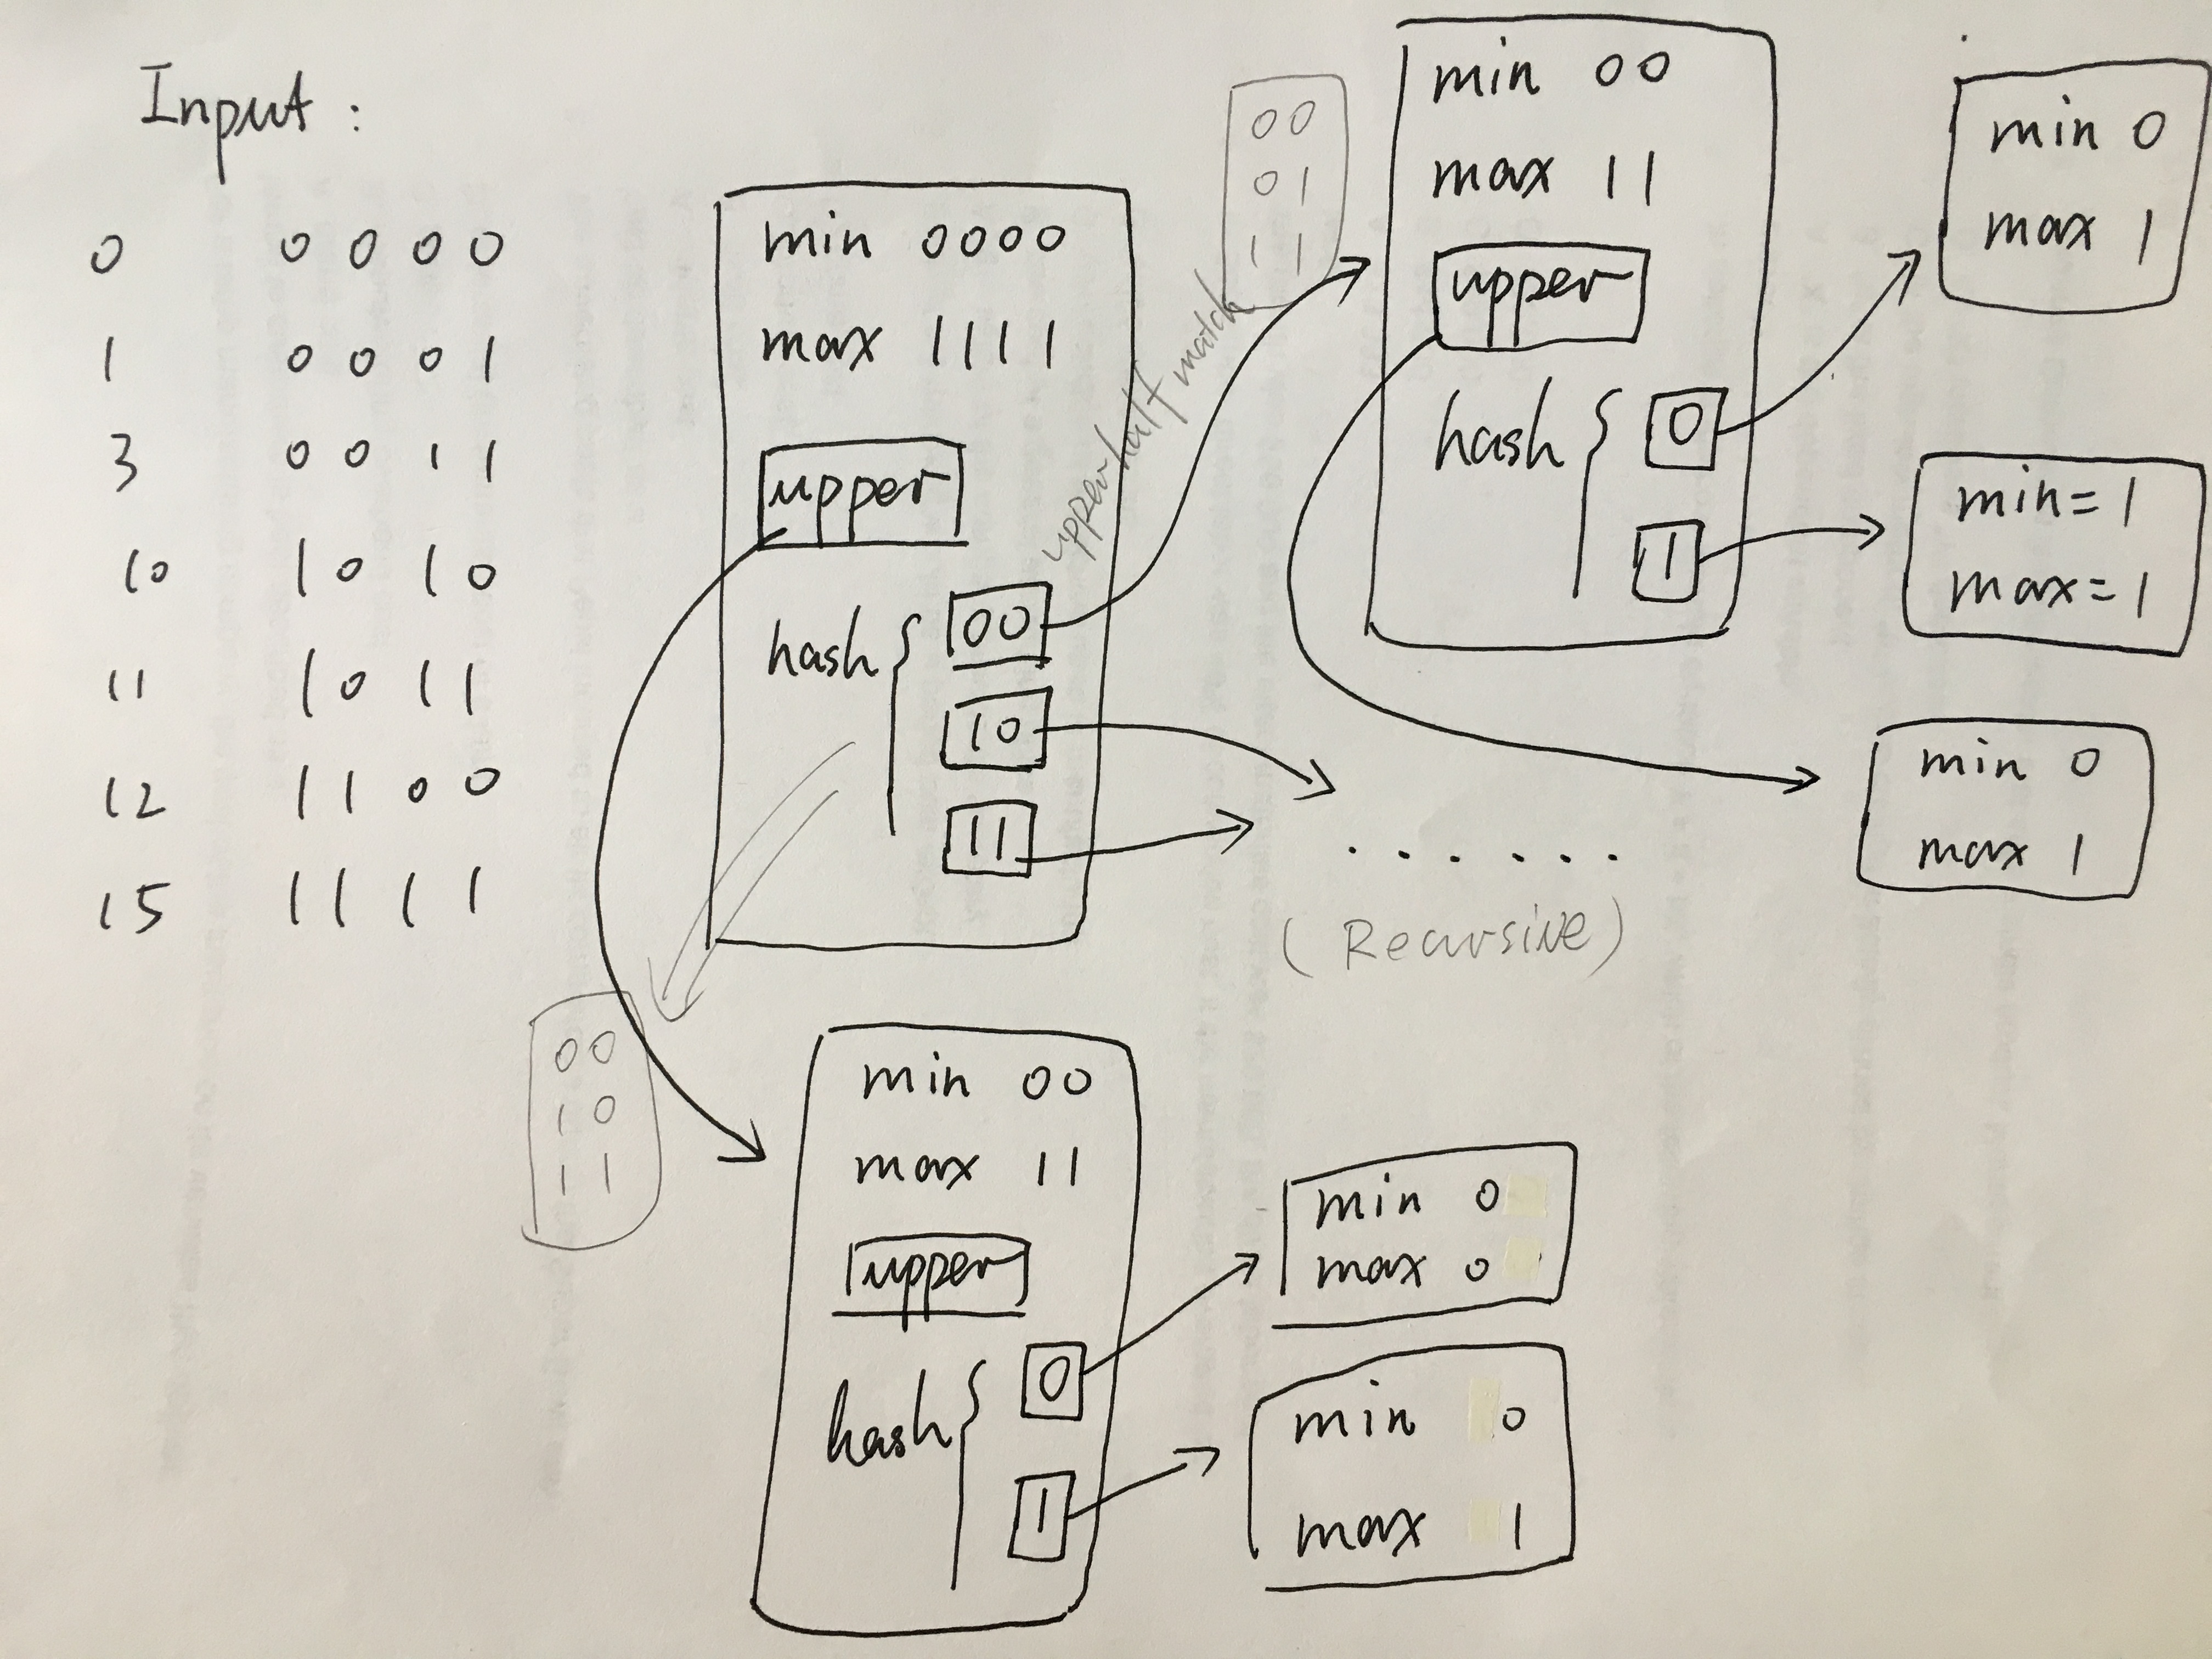 Input :
0 0 0 0 0
1 0 0 0 1
3 0 0 1 1
10 1 0 1 0
11 1 0 1 1
12 1 1 0 0
15 1 1 1 1
min 0000
max 1111
upper
hash
00
10
11
upper half match
00
01
11
min 00
max 11
upper
hash
0
1
min 0
max 1
min = 1
max = 1
min 0
max 1
. . . . . .
( Recursive )
00
10
11
min 00
max 11
upper
hash
0
1
min 0
max 0
min 0
max 1